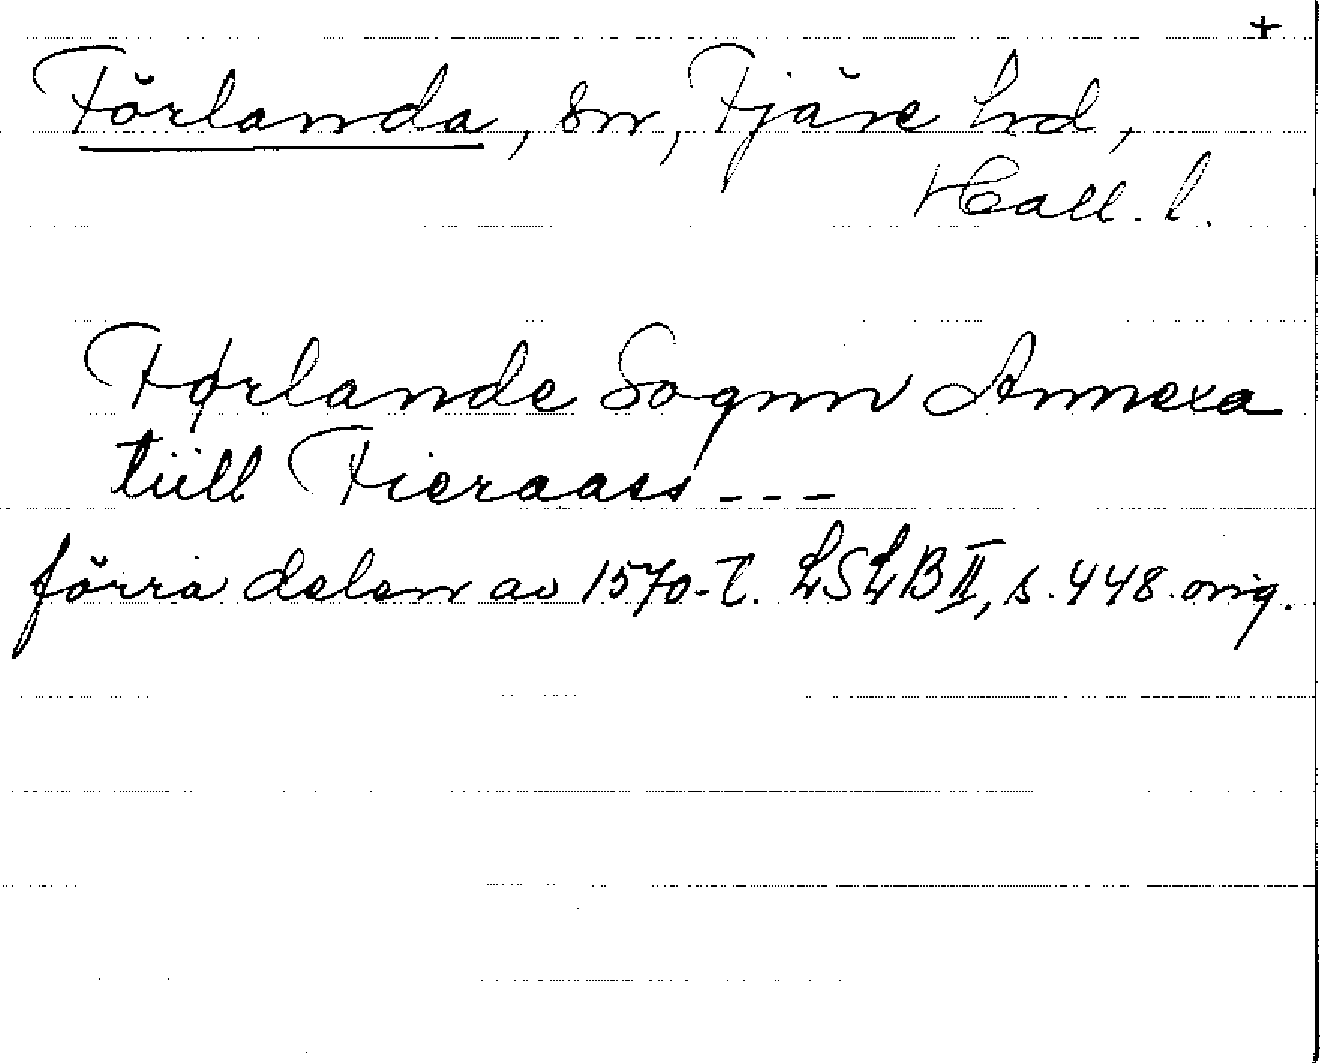 +
Förlanda, sn, Fjäre hd,
Hall. l.
Førlande Sognn Annexa
tiill Fieraass - - -
förra delen av 1570-t. LSLB II, s. 448 orig.